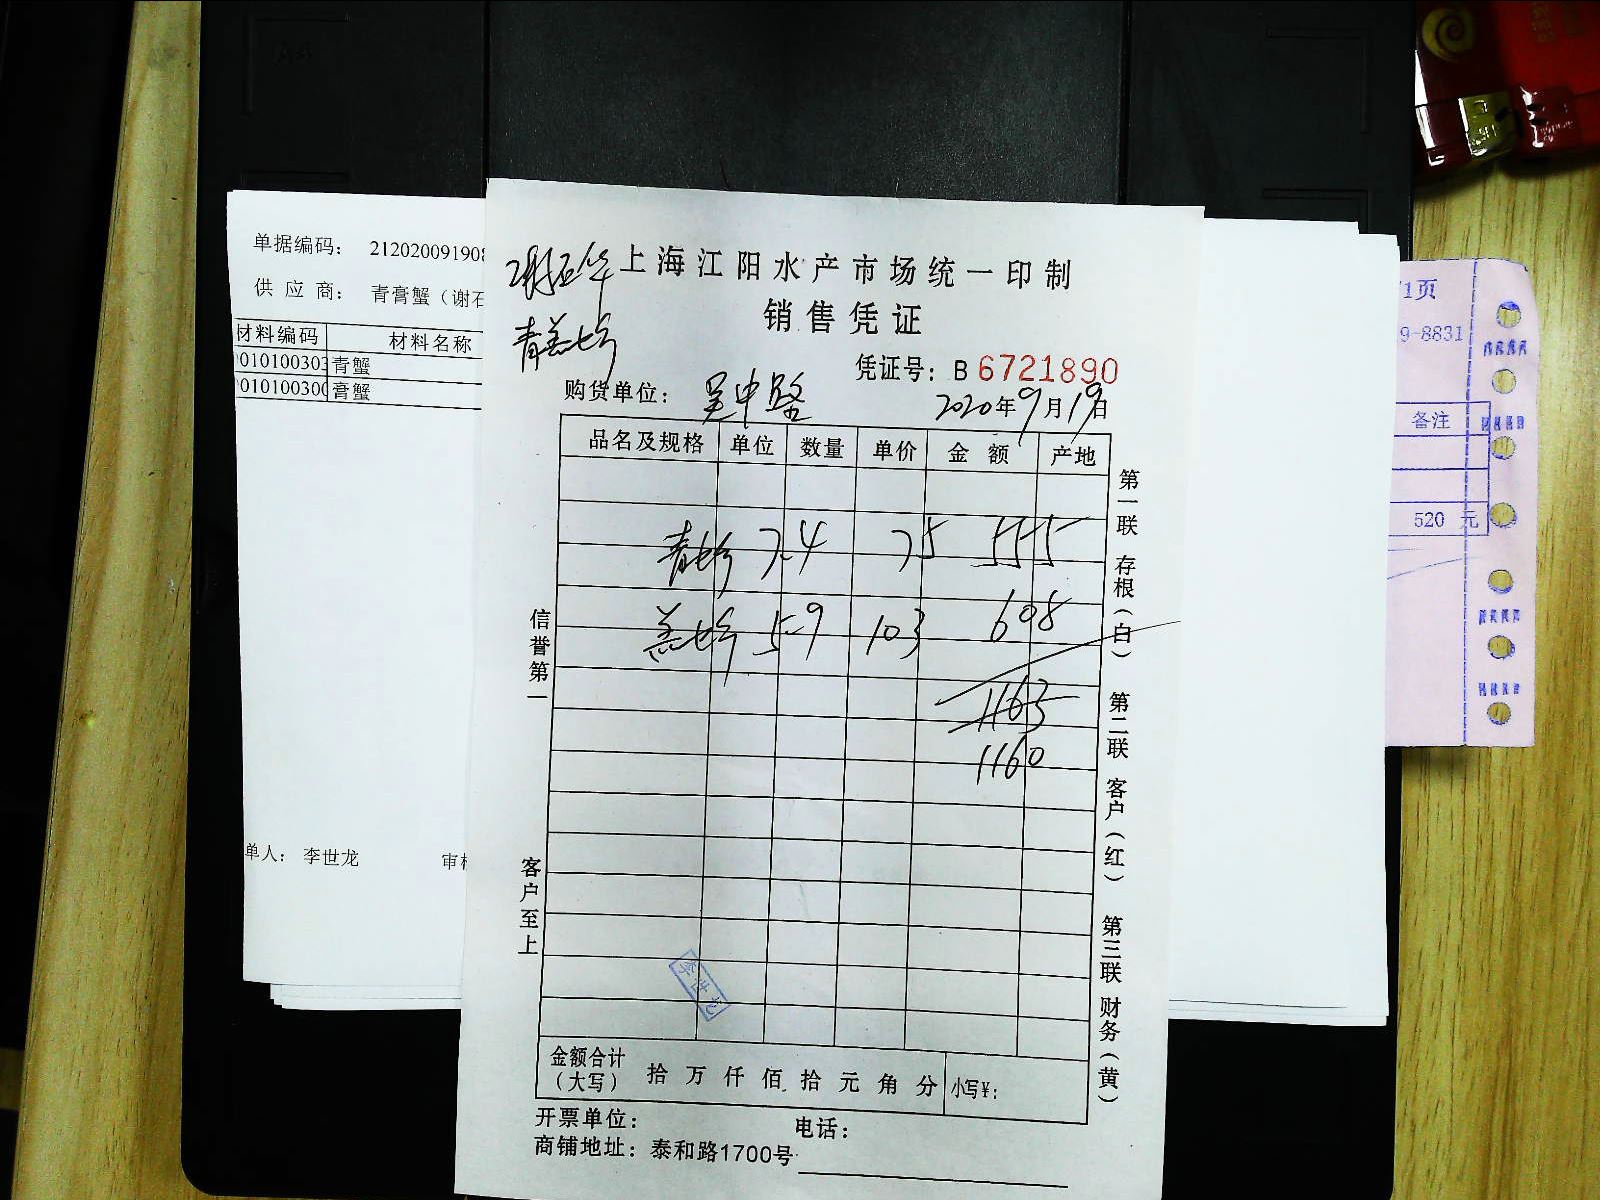 单据编码： 212020091908
供 应 商： 青膏蟹（谢石
材料编码 材料名称
010100303 青蟹
010100300 膏蟹
单人： 李世龙 审核
谢石华
青羔七子
上海江阳水产市场统一印制
销售凭证
凭证号： B 6721890
购货单位： 吴中路
2020年9月19日
品名及规格 单位 数量 单价 金 额 产地
青七子 7.4 75 555
羔七子 5.9 103 608
1163
1160
金额合计
（大写） 拾 万 仟 佰 拾 元 角 分 小写¥：
开票单位： 电话：
商铺地址： 泰和路1700号
信誉第一
客户至上
第一联 存根（白） 第二联 客户（红） 第三联 财务（黄）
李世龙
/1页
9-8831
备注
520 元